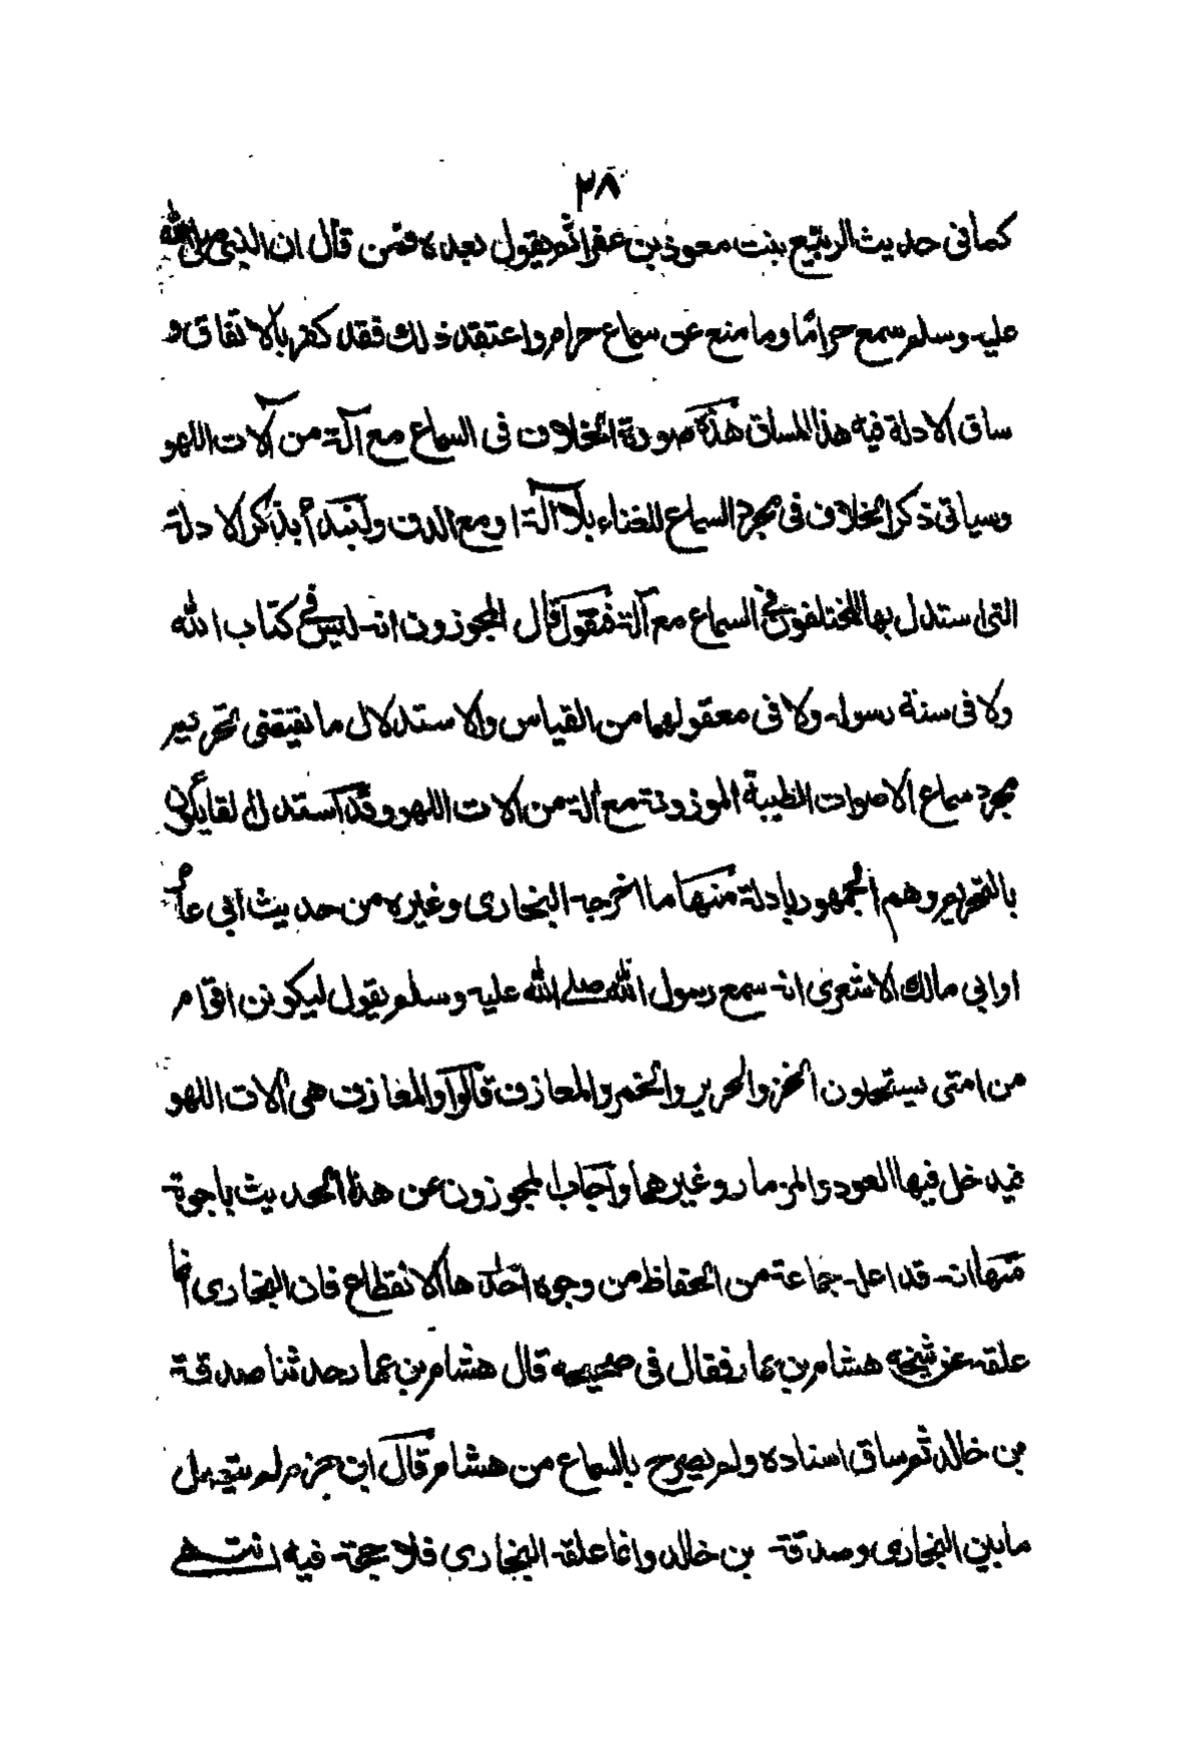 ٢٨
كما فى حديث الربيع بنت معوذ بن عفراء ثم يقول بعده فمن قال ان النبى صلى الله
عليه وسلم سمع حرامًا وما منع عن سماع حرام واعتقد ذلك فقد كفر بالاتفاق و
ساق الادلة فيه هذا المساق هذه صورة الخلاف فى السماع مع آلة من آلات اللهو
وسياتى ذكر الخلاف فى مجرد السماع للغناء بلا آلة او مع الدف ولنبدأ بذكر الادلة
التى استدل بها المختلفون فى السماع مع آلة فنقول قال المجوزون انه ليس فى كتاب الله
ولا فى سنة رسوله ولا فى معقولهما من القياس والاستدلال ما يقتضى تحريم
مجرد سماع الاصوات الطيبة الموزونة مع آلة من آلات اللهو وقد استدل القايلون
بالتحريم وهم الجمهور بادلة منها ما اخرجه البخارى وغيره من حديث ابى عامر
او ابى مالك الاشعرى انه سمع رسول الله صلے الله عليه وسلم يقول ليكونن اقوام
من امتى يستحلون الخز والحرير والخمر والمعازف قالوا والمعازف هى آلات اللهو
فيدخل فيها العود والمزمار وغيرهما واجاب المجوزون عن هذا الحديث باجوبة
منها انه قد اعله جماعة من الحفاظ من وجوه احدها الانقطاع فان البخارى انما
علقه عن شيخه هشام بن عمار فقال فى صحيحه قال هشام بن عمار حدثنا صدقة
بن خالد ثم ساق اسناده ولم يصرح بالسماع من هشام قال ابن حزم لم يتصل
ما بين البخارى وصدقة بن خالد وانما علقه البخارى فلا حجة فيه انتهے